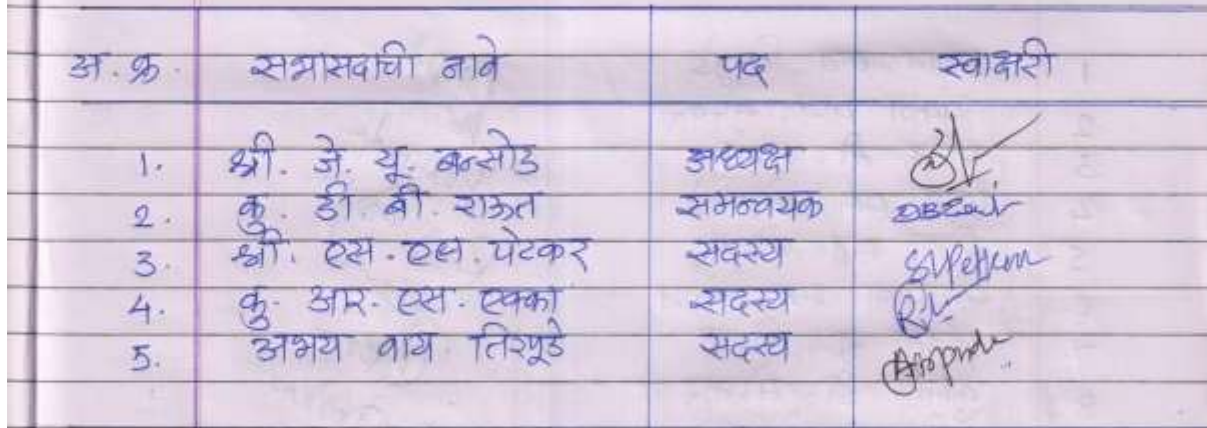 अ. क्र. सभासदाची नावे पद स्वाक्षरी
1. श्री. जे. यू. बन्सोड अध्यक्ष
2. कु. डी. बी. राऊत समन्वयक
3. श्री. एस. एस. पेटकर सदस्य
4. कु. आर. एस. एक्का सदस्य
5. अभय वाय तिरपूडे सदस्य